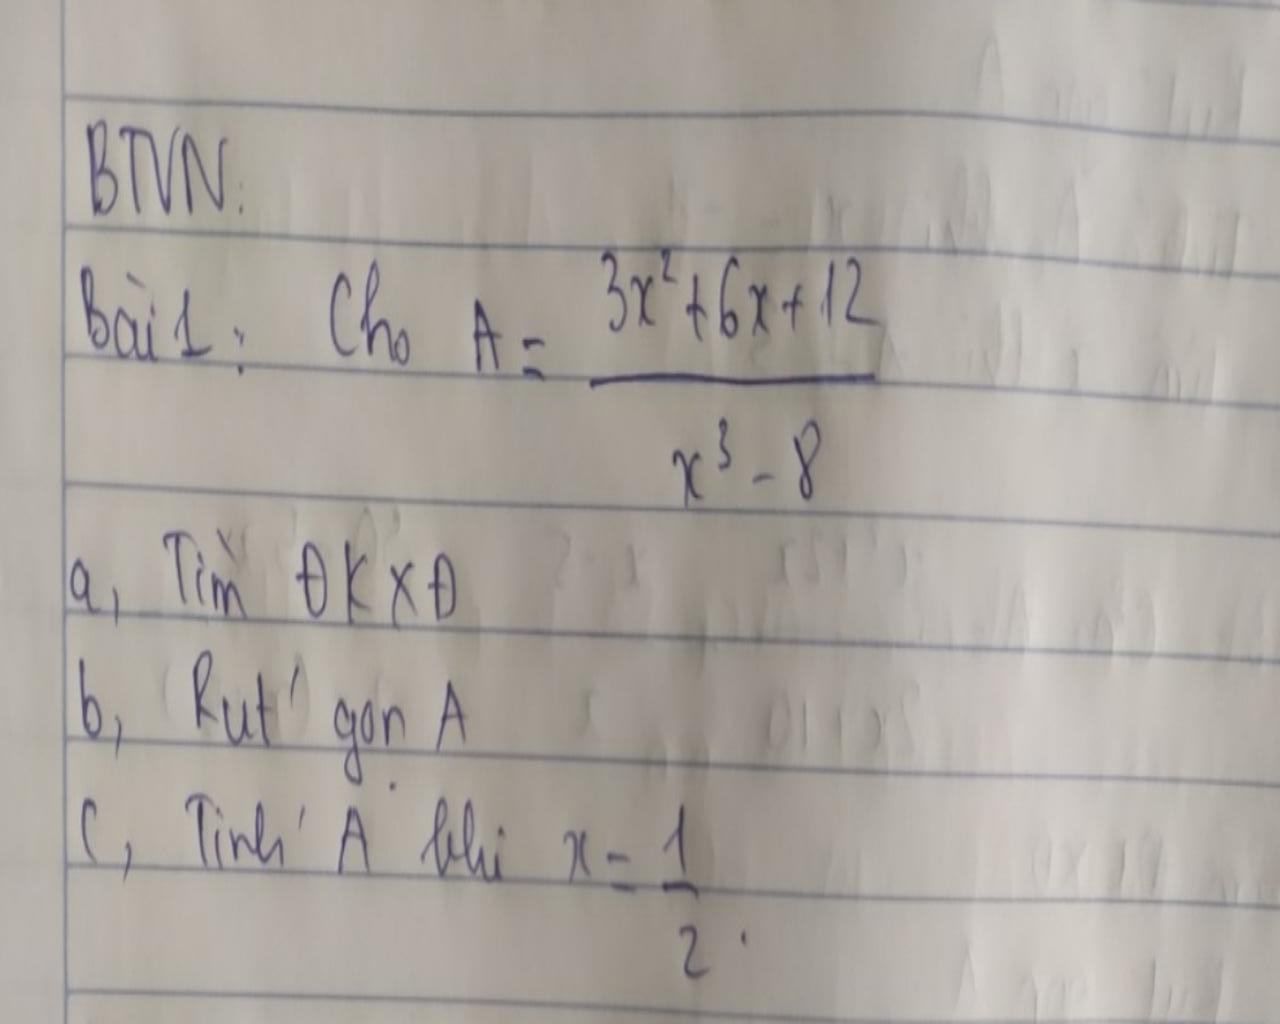 BTVN:
Bài 1: Cho A = \frac{3x^2+6x+12}{x^3-8}
a, Tìm ĐKXĐ
b, Rút gọn A
c, Tính A khi x = \frac{1}{2}.